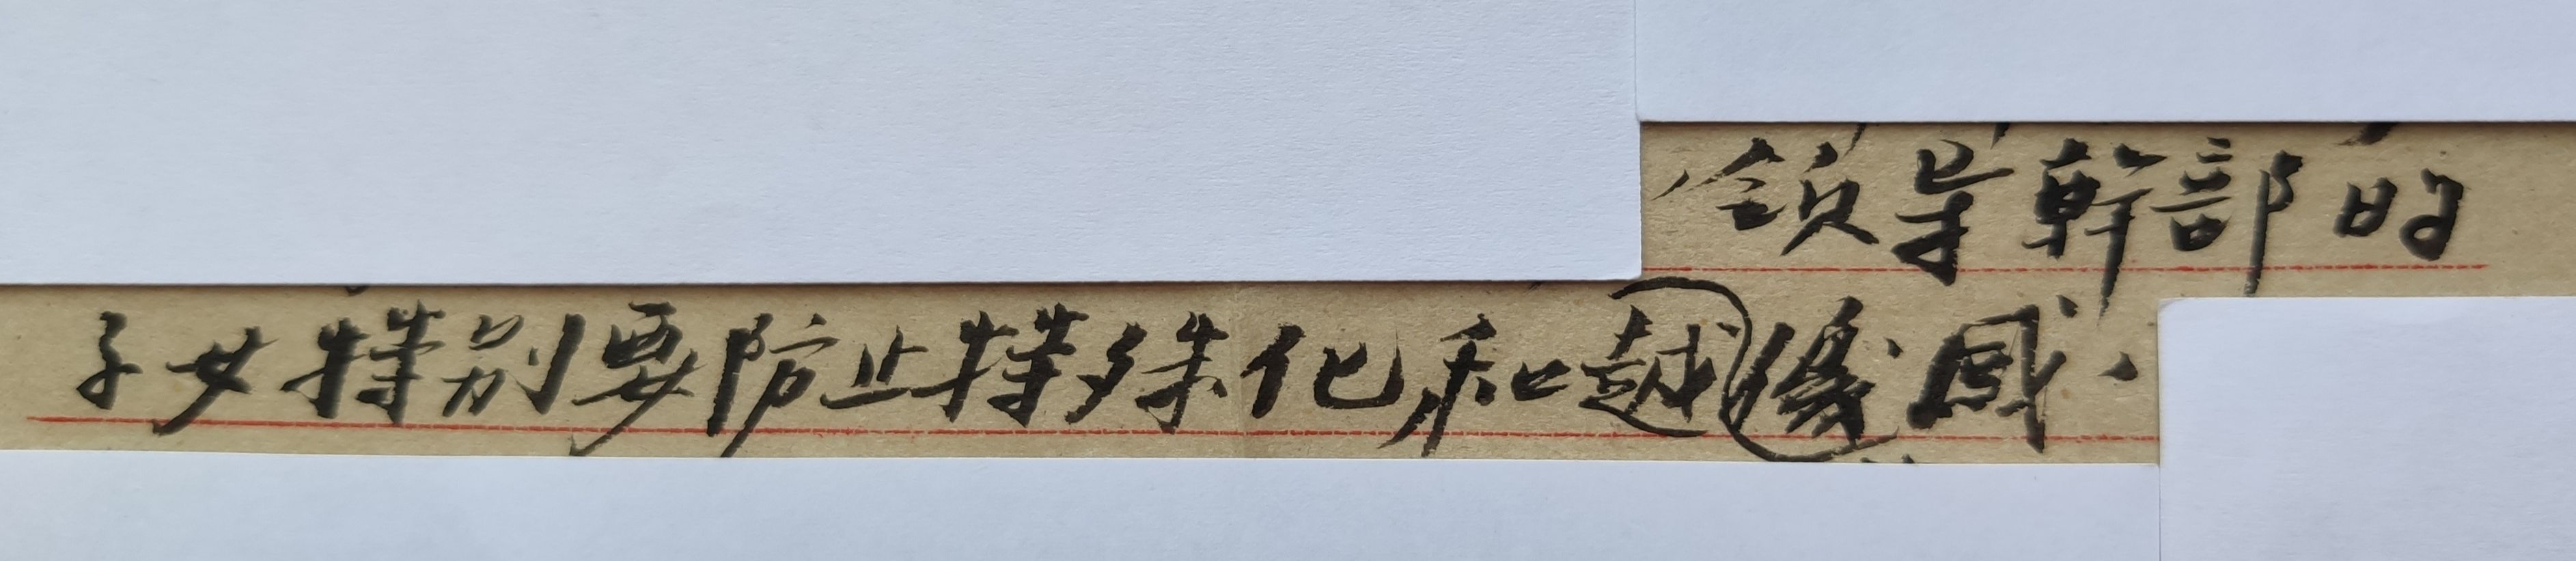 領导幹部的
子女特别要防止特殊化和越優感.